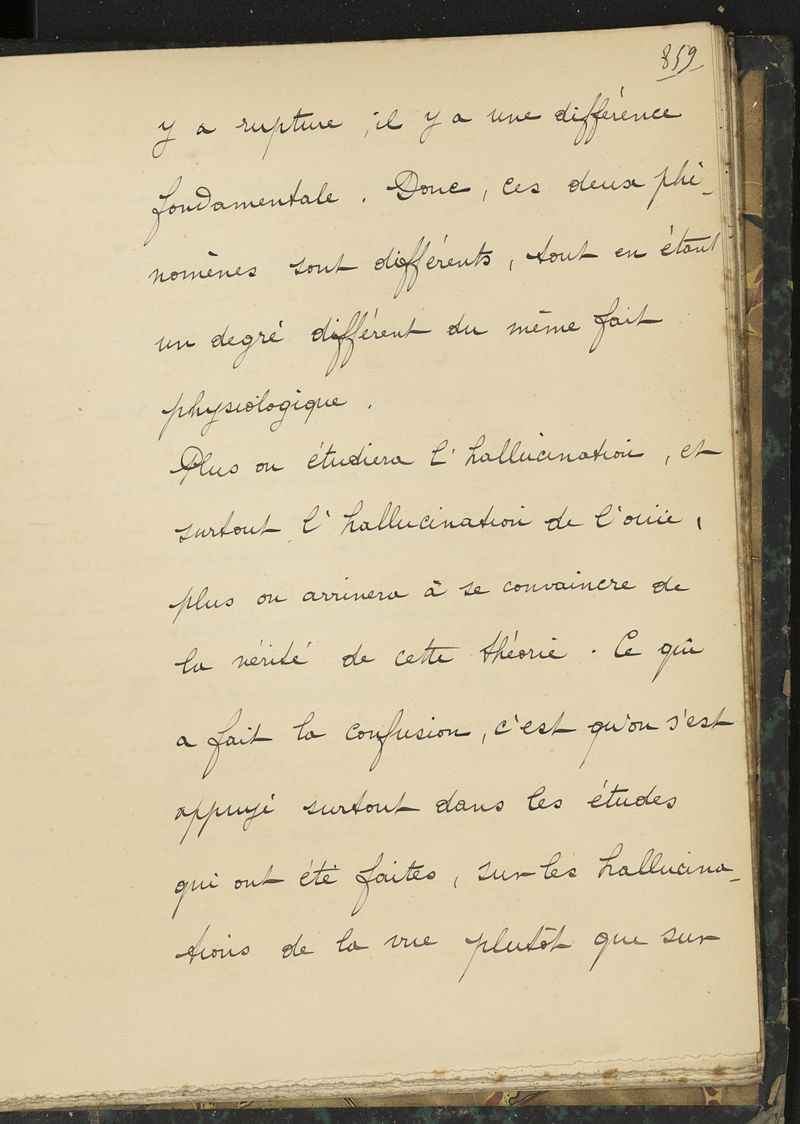 859
y a rupture, il y a une différence
fondamentale. Donc, ces deux phé-
nomènes sont différents, tout en étant
un degré différent du même fait
physiologique.
Plus on étudiera l'hallucination, et
surtout l'hallucination de l'ouïe,
plus on arrivera à se convaincre de
la vérité de cette théorie. Ce qui
a fait la confusion, c'est qu'on s'est
appuyé surtout dans les études
qui ont été faites, sur les hallucina-
tions de la vue plutôt que sur